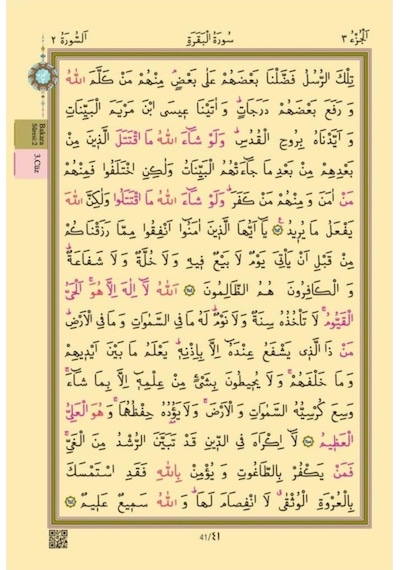 اَلْجُزْءُ ٣ سُورَةُ الْبَقَرَةِ اَلسُّورَةُ ٢
تِلْكَ الرُّسُلُ فَضَّلْنَا بَعْضَهُمْ عَلٰى بَعْضٍۢ مِنْهُمْ مَنْ كَلَّمَ اللّٰهُ
وَ رَفَعَ بَعْضَهُمْ دَرَجَاتٍۜ وَ اٰتَيْنَا عٖيسَى ابْنَ مَرْيَمَ الْبَيِّنَاتِ
وَ اَيَّدْنَاهُ بِرُوحِ الْقُدُسِۜ وَلَوْ شَٓاءَ اللّٰهُ مَا اقْتَتَلَ الَّذٖينَ مِنْ
بَعْدِهِمْ مِنْ بَعْدِ مَا جَٓاءَتْهُمُ الْبَيِّنَاتُ وَلٰكِنِ اخْتَلَفُوا فَمِنْهُمْ
مَنْ اٰمَنَ وَ مِنْهُمْ مَنْ كَفَرَۜ وَلَوْ شَٓاءَ اللّٰهُ مَا اقْتَتَلُوا وَلٰكِنَّ اللّٰهَ
يَفْعَلُ مَا يُرٖيدُ ﴿٢٥٣﴾ يَٓا اَيُّهَا الَّذٖينَ اٰمَنُٓوا اَنْفِقُوا مِمَّا رَزَقْنَاكُمْ
مِنْ قَبْلِ اَنْ يَأْتِيَ يَوْمٌ لَا بَيْعٌ فٖيهِ وَ لَا خُلَّةٌ وَ لَا شَفَاعَةٌۜ
وَ الْكَافِرُونَ هُمُ الظَّالِمُونَ ﴿٢٥٤﴾ اَللّٰهُ لَٓا اِلٰهَ اِلَّا هُوَۚ اَلْحَيُّ
الْقَيُّومُۚ لَا تَأْخُذُهُ سِنَةٌ وَلَا نَوْمٌۜ لَهُ مَا فِي السَّمٰوَاتِ وَ مَا فِي الْاَرْضِۜ
مَنْ ذَا الَّذٖي يَشْفَعُ عِنْدَهُٓ اِلَّا بِاِذْنِهٖۜ يَعْلَمُ مَا بَيْنَ اَيْدٖيهِمْ
وَ مَا خَلْفَهُمْۚ وَ لَا يُحٖيطُونَ بِشَيْءٍ مِنْ عِلْمِهٖٓ اِلَّا بِمَا شَٓاءَۚ
وَسِعَ كُرْسِيُّهُ السَّمٰوَاتِ وَ الْاَرْضَۚ وَلَا يَؤُ۫دُهُ حِفْظُهُمَاۚ وَ هُوَ الْعَلِيُّ
الْعَظٖيمُ ﴿٢٥٥﴾ لَٓا اِكْرَاهَ فِي الدّٖينِ قَدْ تَبَيَّنَ الرُّشْدُ مِنَ الْغَيِّۚ
فَمَنْ يَكْفُرْ بِالطَّاغُوتِ وَ يُؤْمِنْ بِاللّٰهِ فَقَدِ اسْتَمْسَكَ
بِالْعُرْوَةِ الْوُثْقٰىۗ لَا انْفِصَامَ لَهَاۜ وَ اللّٰهُ سَمٖيعٌ عَلٖيمٌ ﴿٢٥٦﴾
Bakara
Sûresi:2
3.Cüz
41/٤١